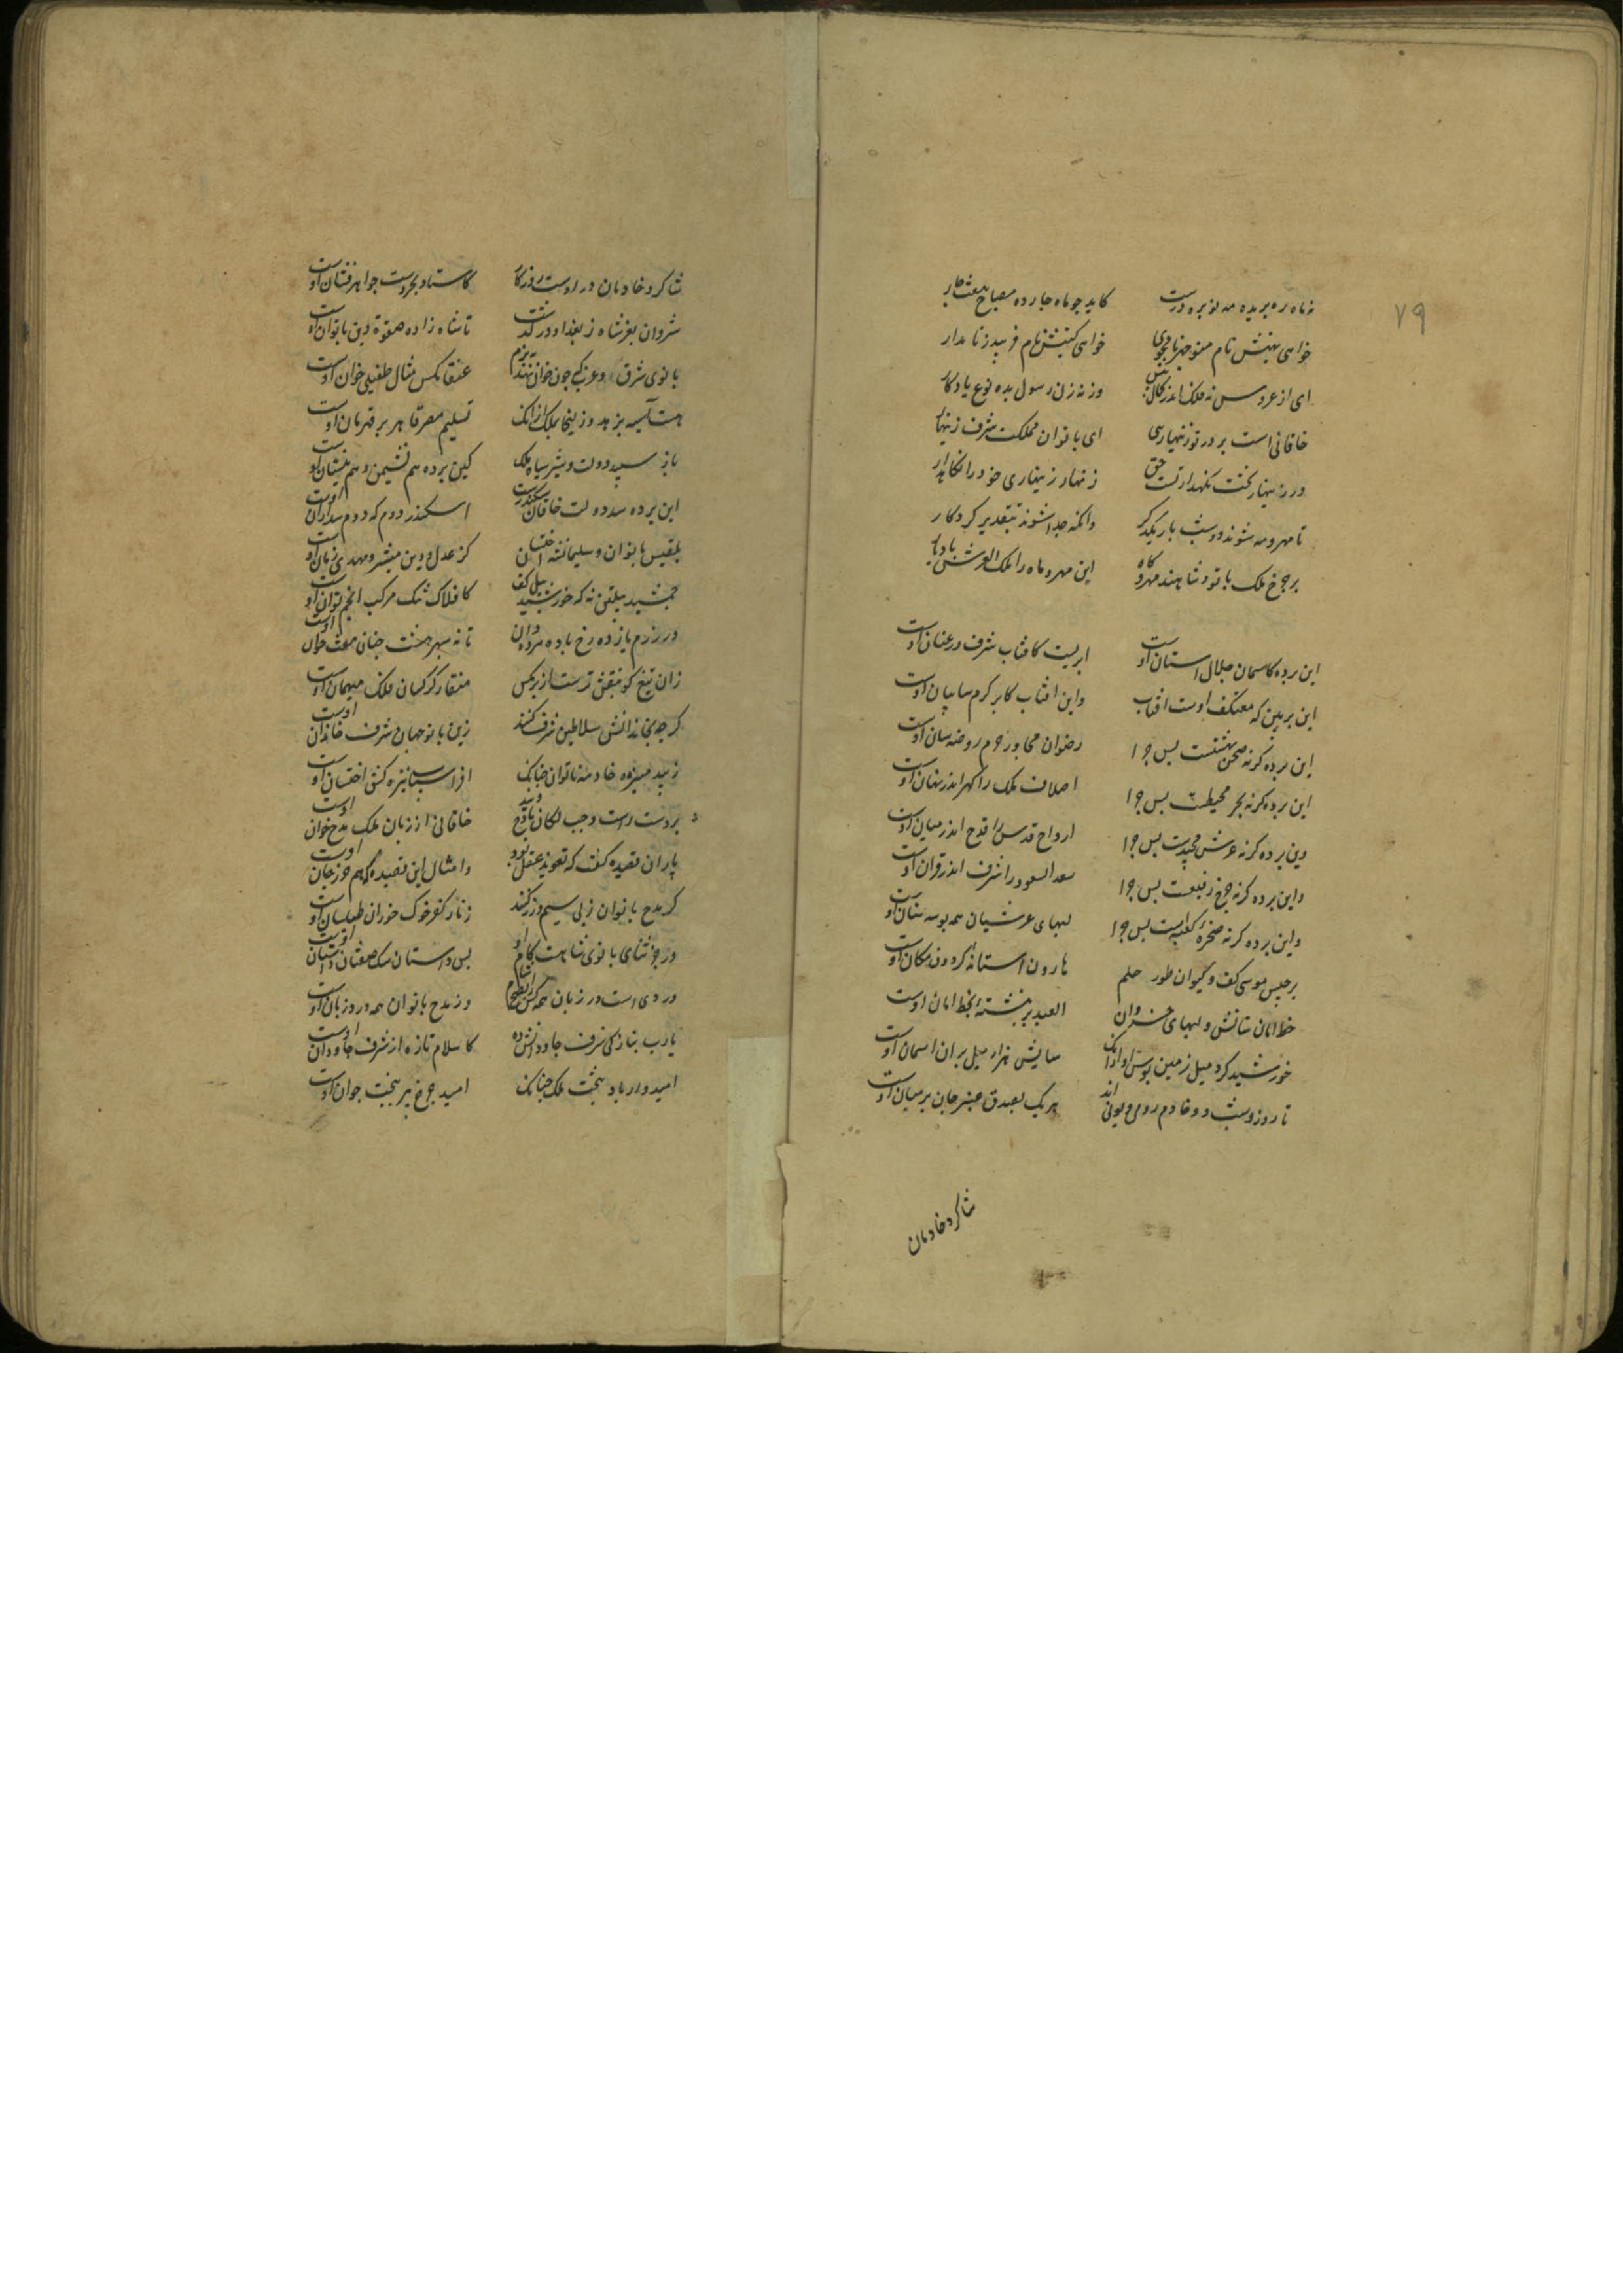 ۷۹
نه ماه ره بریده مه نو بره درست کاید چو ماه چارده مصباح هفت چار
خواهی بهینش نام منوچهر نامجوی خواهی کنیتش نام فریبرز نامدار
ای از عروس نه فلک اندر کمال بیش وز نه زن رسول بده نوع یادگار
خاقانی است بر در تو زینهاری ای بانوان مملکت شرف زینهار
در زینهار کشت نکهدار تست حق زنهار زینهاری خود را نکاهدار
تا مهر و مه شوند دو شب باز یکدگر وانکه جدا شوند بتقدیر کردکار
بر چرخ ملک با تو و شاهند مهر و ماه این مهر و ماه را ملک العرش باد یار
این پرده کاسمان جلال استان اوست ابریست کافتاب شرف در عنان اوست
این پر بین که معتکف اوست افتاب واین افتاب کابر کرم سایبان اوست
این پرده کرنه صحن بهشتست پس چرا رضوان مجاور حرم روضه سان اوست
این پرده کرنه بحر محیطست پس چرا اصداف ملک را کهر اندر نهان اوست
وین پرده کرنه عرش مجیدست پس چرا ارواح قدس را قدح اندر میان اوست
واین پرده کرنه چرخ رفیعست پس چرا سعد السعود را شرف اندر قران اوست
واین پرده کرنه صخره و کعبه است پس چرا لبهای عرشیان همه بوسه ستان اوست
برجیس موسی کف و کیوان طور حلم هارون استانه کردون مکان اوست
خط امان ستانش و لبهای خسروان العبد بر نبشته بخط امان اوست
خورشید کرد میل زمین بوس او ازانک سایش هزار میل بران اسمان اوست
تا روز و شب دو خادم رومی و اند هر یک بصدق عنبر جان بر میان اوست
شاکرد خادمان
شاکرد خادمان در اوست روزکار کاستاد بحر دست جواهر فشان اوست
شروان بفر شاه ز بغداد در کذشت تا شاه زاده صفوة دین بانوان اوست
بانوی شرق و غرب که چون خوان نهند ببزم عنقا مکس مثال طفیلی خوان اوست
هست آسیه بزهد و زلیخا بملک ازانک تسلیم مصر قاهره بر قهرمان اوست
باز سپید دولت و شیر سیاه ملک کین پرده هم نشیمن و هم نیستان اوست
این پرده سد دولت خاقان سکندرست اسکندر دوم که دوم سد ازان اوست
بلقیس بانوان و سلیمانشه اختسان کز عدل و دین مبشر و مهدی زمان اوست
جمشید پیلتن نه که خورشید نیل کف کافلاک تنک مرکب انجم توان اوست
در رزم یازده رخ با ده ده وان تا نه سپهر و هشت جنان هفت خوان اوست
زان تیغ کو بنفش ترست از پر مکس منقار کرکسان فلک میهمان اوست
کر چه بخاندانش سلاطین شرف کنند زین بانو جهان شرف خاندان اوست
زبید منیژه خادمه بانوان چنانک افراسیاب نیزه کش اختسان اوست
بر دست راست و چپ ملکان مادح ویند خاقانی از زبان ملک مدح خوان اوست
یاران قصیده کفت که تعویذ عقل بود وامثال این قصیده کهم حرز جان اوست
کر مدح بانوان ز پی سیم و زر کنند زنار کفر خوک خوران طیلسان اوست
ورجز ثنای بانوی شاهست کام او بس داستان سک صفتان داستان اوست
وردی است در زبان همه کس را بصبح و شام وز مدح بانوان همه در زبان اوست
یارب بتازکی شرف جاودانش ده کاسلام تازه از شرف جاودان اوست
امیدوار باد ببخت ملک چنانک امید چرخ پیر ببخت جوان اوست